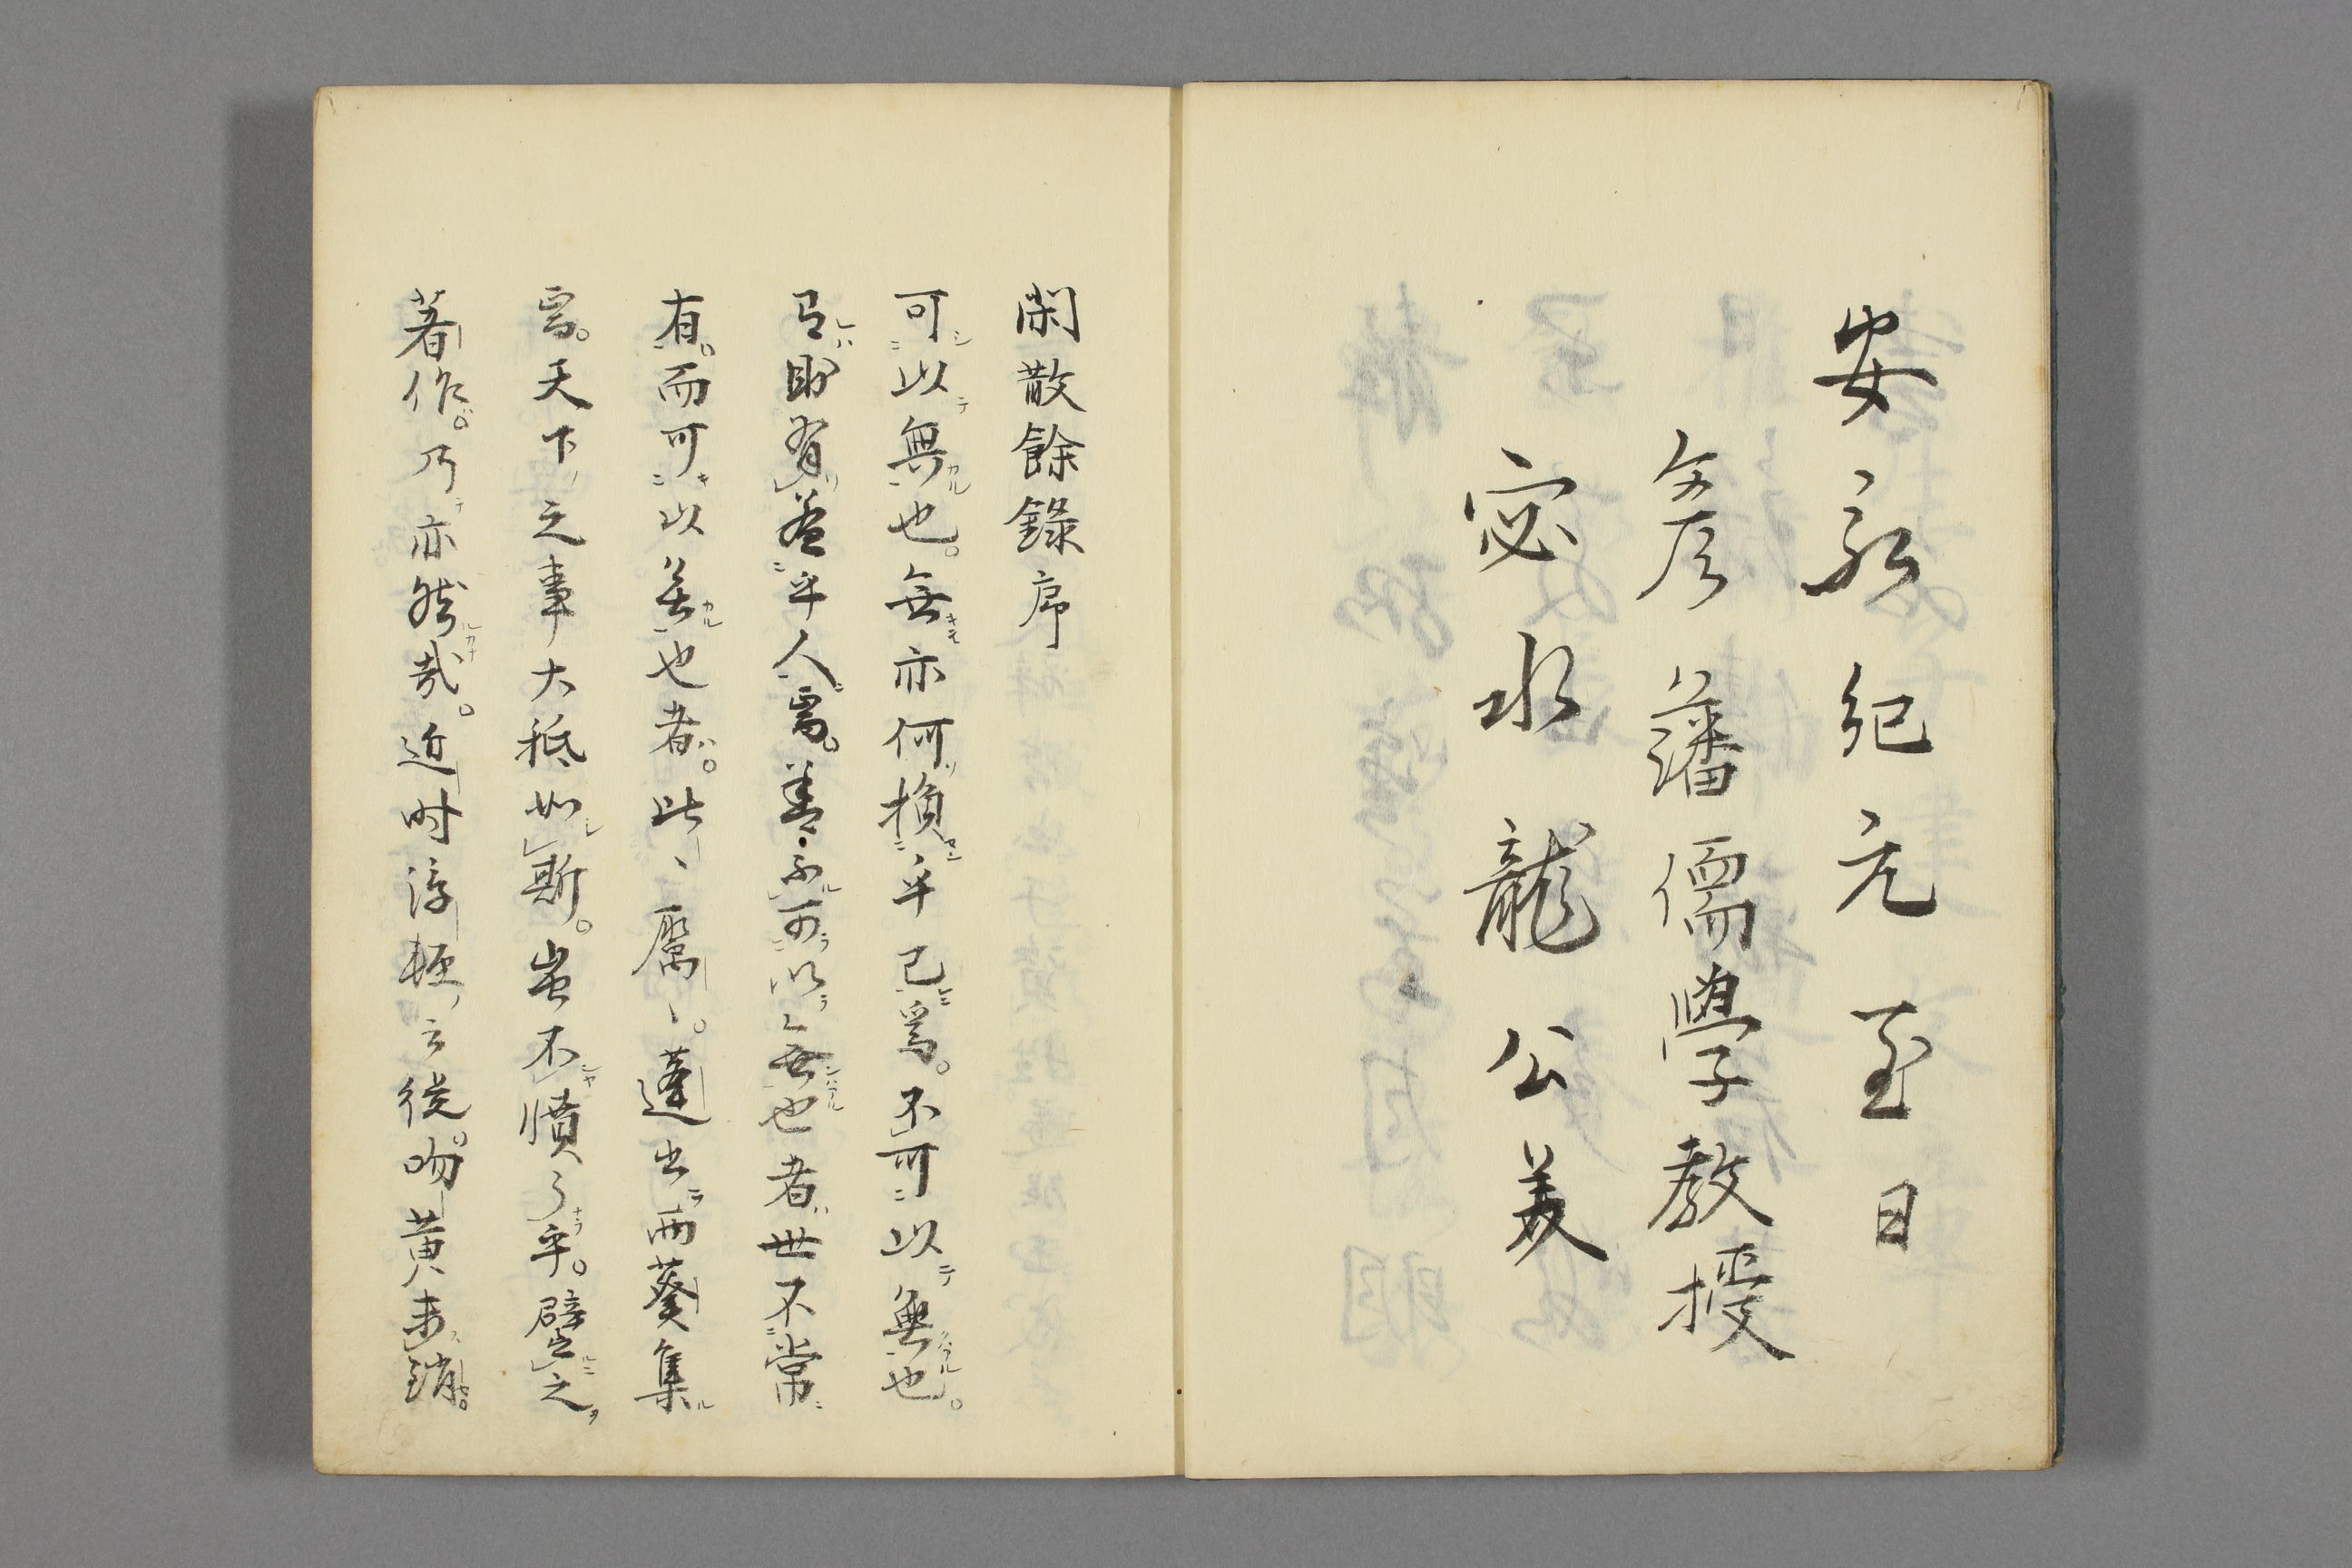 安永紀元至日
彦藩儒學教授
宓水龍公美
閑散餘錄序
可以無也。無亦何損乎已焉。不可以無也。
即有益乎人焉。善不可以無也者世不常
有。而可以無也者。比〻屬〻。蓬出而蝟集
焉。天下之事大抵如斯。豈不憤々乎。譬之
著作。乃亦然哉。近时浮輕之徒。吻黄未銷。